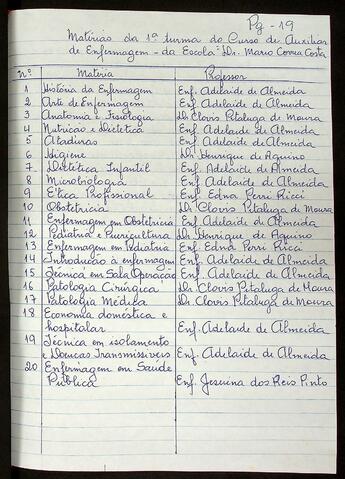 Pg - 19
Matérias da 1ª turma do Curso de Auxiliar
de Enfermagem - da Escola "Dr. Mario Correa Costa
nº Materia Professor
1 História da Enfermagem Enf. Adelaide de Almeida
2 Arte de Enfermagem Enf. Adelaide de Almeida
3 Anatomia e Fisiologia Dr Clovis Pitaluga de Moura
4 Nutrição e Dietética Enf. Adelaide de Almeida
5 Ataduras Enf. Adelaide de Almeida
6 Higiene Dr Henrique de Aquino
7 Dietética Infantil Enf. Adelaide de Almeida
8 Microbiologia Enf. Adelaide de Almeida
9 Ética Profissional Enf. Edna Perri Ricci
10 Obstetrícia Dr Clovis Pitaluga de Moura
11 Enfermagem em Obstetrícia Enf. Adelaide de Almeida
12 Pediatria e Puericultura Dr Henrique de Aquino
13 Enfermagem em Pediatria Enf. Edna Perri Ricci
14 Introdução à enfermagem Enf. Adelaide de Almeida
15 Técnica em Sala Operação Enf. Adelaide de Almeida
16 Patologia Cirúrgica Dr Clovis Pitaluga de Moura
17 Patologia Médica Dr Clovis Pitaluga de Moura
18 Economia doméstica e
hospitalar Enf. Adelaide de Almeida
19 Técnica em isolamento
e Doenças Transmissiveis Enf. Adelaide de Almeida
20 Enfermagem em Saúde
Pública Enf. Jesuina dos Reis Pinto